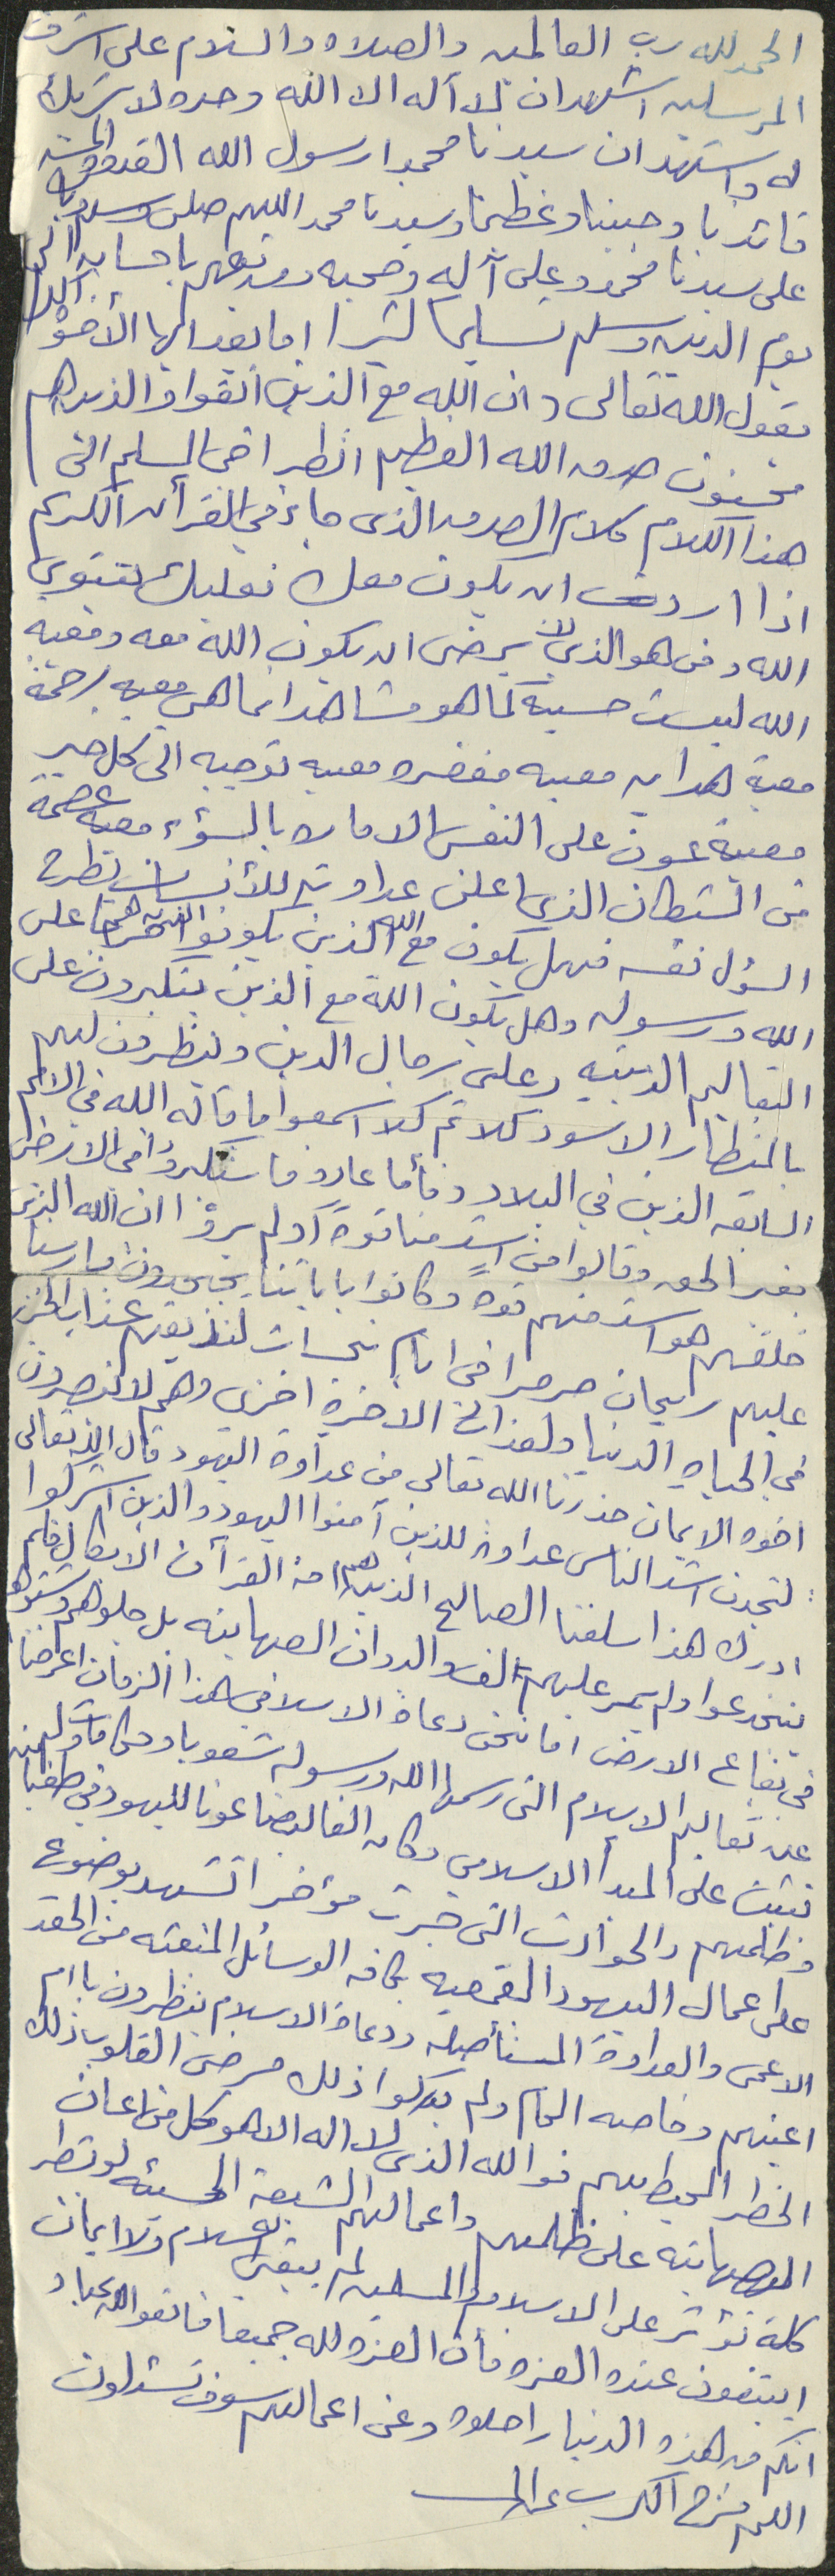 الحمد لله رب العالمين والصلاه والسلام على اشرف
المرسلين اشهد ان لا اله الا الله وحده لا شريك
له واشهد ان سيدنا محمدا رسول الله القدوه الحسنه
قائدنا وحبيبنا وعظيمنا وسيدنا محمد اللهم صلي وسلم وبارك
على سيدنا محمد وعلى آله وصحبه ومن تبعهم باحسان الى
يوم الدين وسلم تسليما كثيرا اما بعد ايها الأخوة
يقول الله تعالى وان الله مع الذين اتقوا والذين هم
محسنون صدق الله العظيم انظر اخي المسلم الى
هذا الكلام كلام الصدق الذي جاء في القرآن الكريم
اذا اردت ان يكون معك فعليك بتقوى
الله ومن هو الذي لا يرضى ان يكون الله معه ومعيه
الله ليست حسيه كما هو مشاهد انما هي معيه رحمة
معية هدايه معيه مغفره معيه توجيه الى كل خير
معية عون على النفس الاماره بالسؤء معيه عصمة
من الشيطان الذي اعلن عداوته للأنسان يطرح
السؤل نفسه فهل يكون الله مع الذين يكونوا على
الله ورسوله وهل يكون الله مع الذين يتكبرون على
التعاليم الدينيه وعلى رجال الدين وينظرون لهم
بالمنظار الاسود كلا ثم كلا اسمعوا ما قاله الله في الامم
السابقه الذين في البلاد وفأما عاد فاستكبروا في الارض
بغير الحق وقالوا من اشد منا قوةً أولم يرؤا ان الله الذي
خلقهم هو اشد منهم قوه وكانوا باياتنا يجحدون فارسلنا
عليهم ريحان صرصرا في ايام نحسات لنذيقهم عذاب الخزي
في الحياه الدنيا ولعذاب الاخرة اخزى وهم لا ينصرون
اخوه الايمان حذرنا الله تعالى من عداوة اليهود قال الله تعالى
: لتجدن اشد الناس عداوة للذين آمنوا اليهود والذين اشركوا
ادرك هذا سلفنا الصالح الذين هم القرآن فلم
ينخدعوا ولم يمر عليهم الصهاينه بل
في بقاع الارض اما نحن دعاة الاسلام في هذا الزمان اعرضنا
عن تعاليم الاسلام التي رسمها الله ورسوله شعوبا وحكومات
على المبدأ الاسلامي وكان عونا لليهود في
وظلمهم والحوادث التي جرت مؤخرا تشهد بوضوح
على اعمال اليهود القمعيه بكافه الوسائل من الحقد
الاعمى والعداوة المستأصله ودعاة الاسلام ينظرون بأم
اعينهم وخاصه الحكام ولم يدركوا ذلك مرضى القلوب ذلك
الخطر المحيط بهم فوالله الذي لا اله الا هو كل من اعان
الصهاينه على ظلمهم واعمالهم
كلة تؤثر على الاسلام والمسلمين لم يبقى اسلام ولا ايمان
ايبتغون عنده العزه فأن العزه لله جميعا فاتقوا الله عباد
انكم من هذه الدنيا راحلون وعن اعمالكم سوف تسئلون
اللهم فرج الكرب